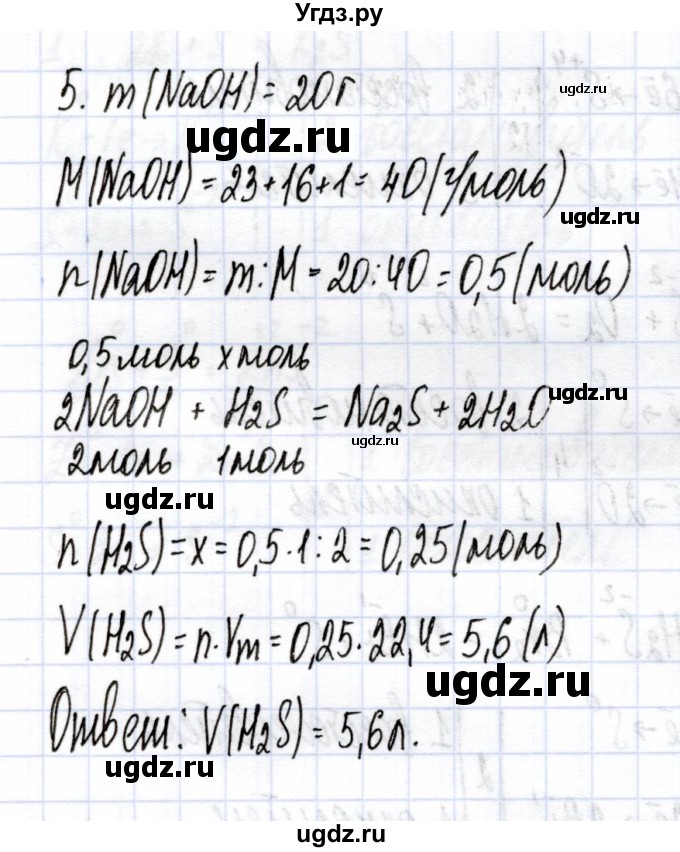 Угдз.ру
5. m(NaOH) = 20г
ugdz.ru
ugdz.ru
M(NaOH) = 23+16+1 = 40(г/моль)
ugdz.ru
n(NaOH) = m:M = 20:40 = 0,5(моль)
0,5 моль x моль
ugdz.ru
2NaOH + H2S = Na2S + 2H2O
ugdz.ru
2моль 1моль
ugdz.ru
n(H2S) = x = 0,5·1:2 = 0,25(моль)
V(H2S) = n·Vm = 0,25·22,4 = 5,6(л)
ugdz.ru
Ответ: V(H2S) = 5,6л.
ugdz.ru
ugdz.ru